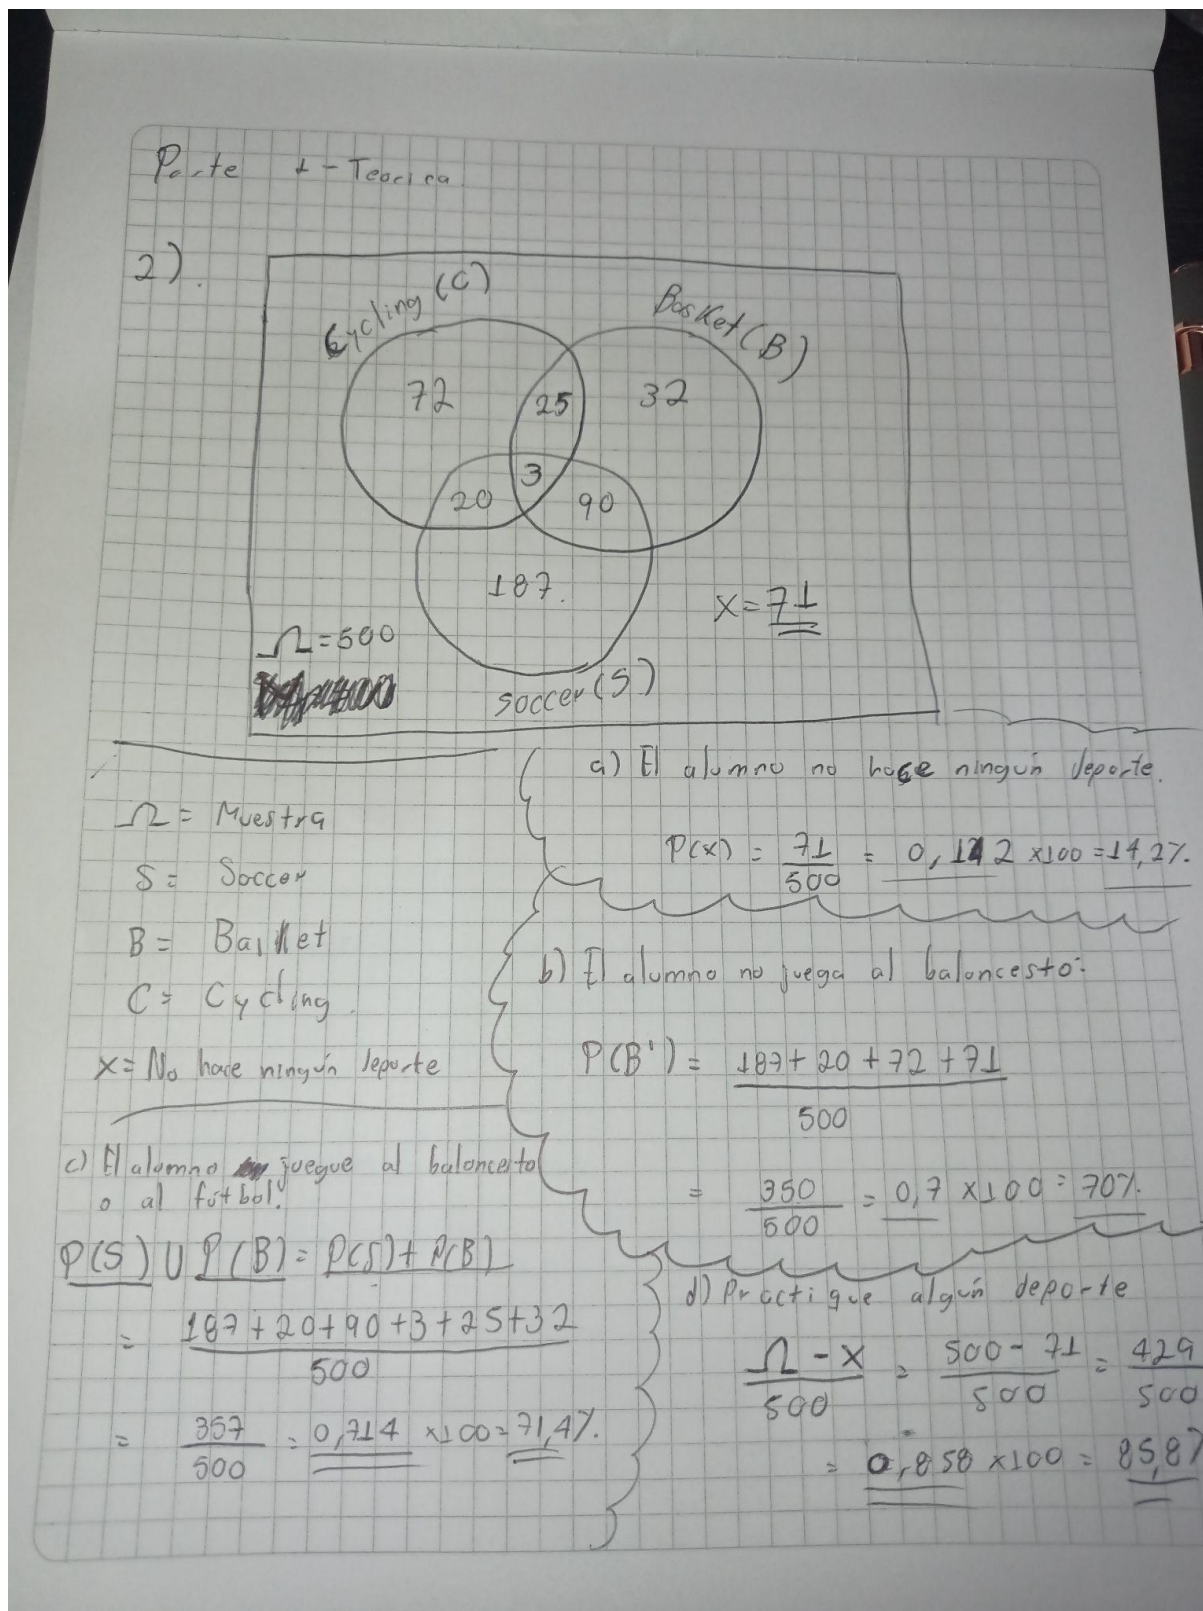 Parte 1 - Teorica
2).
Cycling (C)
Basket (B)
72
25
32
3
20
90
187.
X = 71
Ω = 500
soccer (S)
Ω = Muestra
S = Soccer
B = Basket
C = Cycling.
X = No hace ningún deporte
a) El alumno no hace ningún deporte.
P(x) = 71/500 = 0,142 x100 = 14,2%.
b) El alumno no juega al baloncesto:
P(B') = 187 + 20 + 72 + 71
500
= 350/500 = 0,7 x100 = 70%.
c) El alumno juegue al baloncesto
o al fútbol:
P(S) U P(B) = P(S) + P(B)
= 187 + 20 + 90 + 3 + 25 + 32
500
= 357/500 = 0,714 x100 = 71,4%.
d) Practique algún deporte
Ω - X/500 = 500 - 71/500 = 429/500
= 0,858 x100 = 85,8%